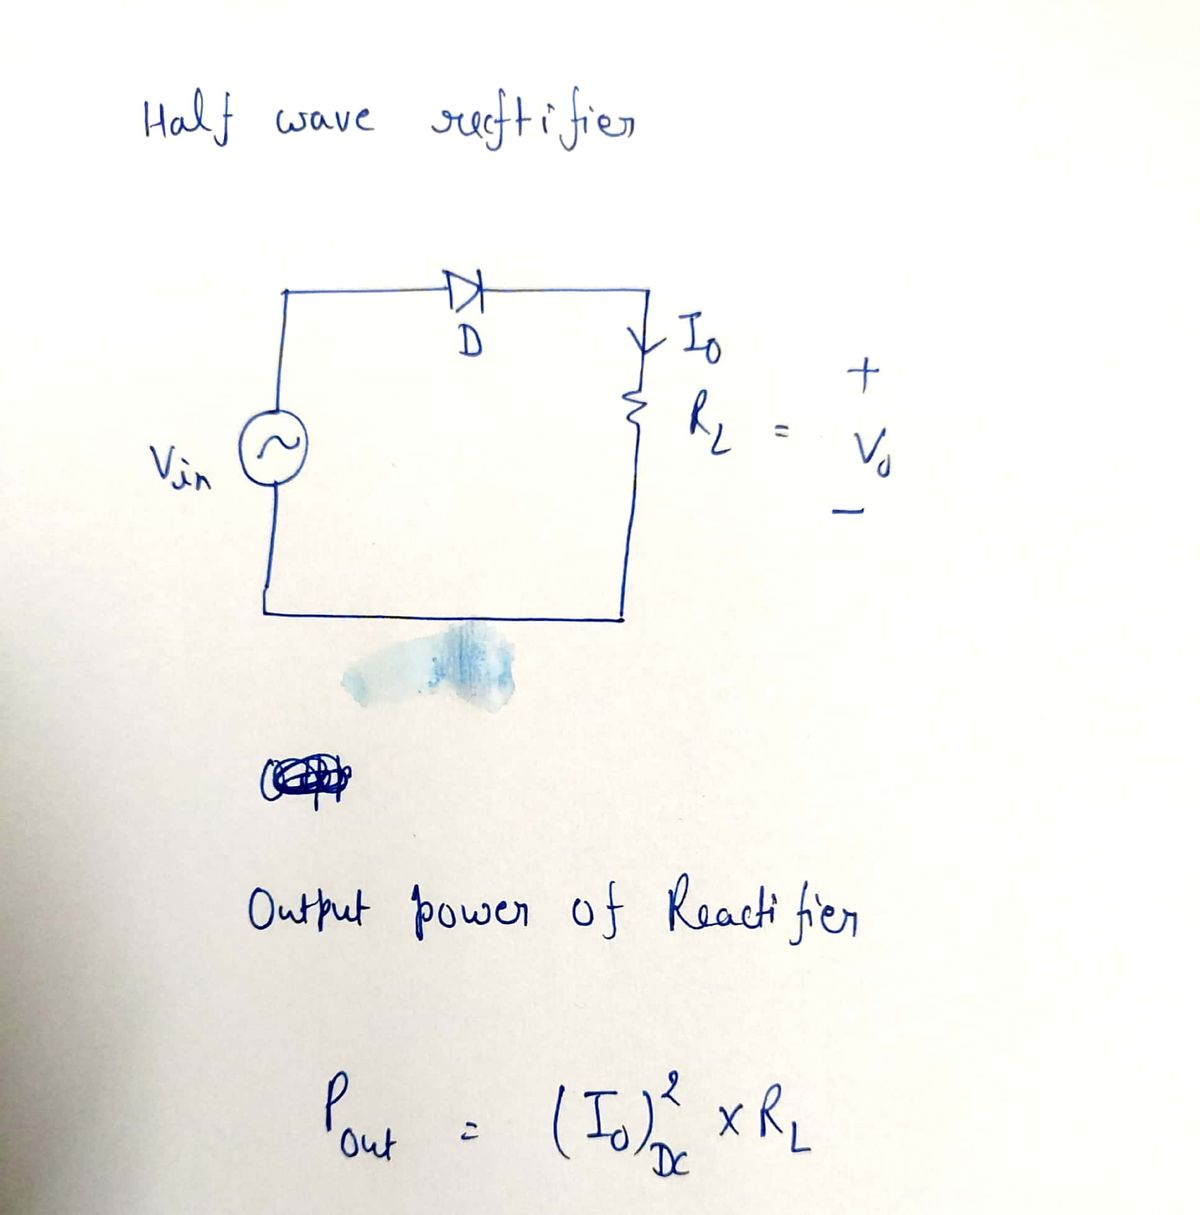 Half wave rectifier
D
I₀
+
Vin
R_L = V₀
-
Output power of Reactifier
P_out = (I₀)²_DC × R_L